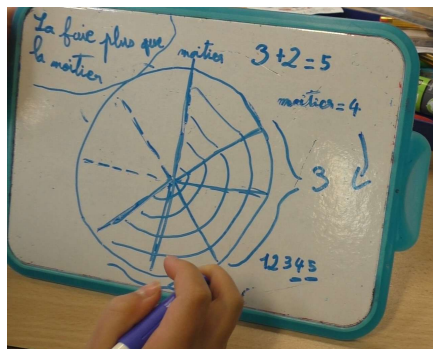 La faire plus que
la moitier
moitier
3+2=5
moitier=4
3
12345